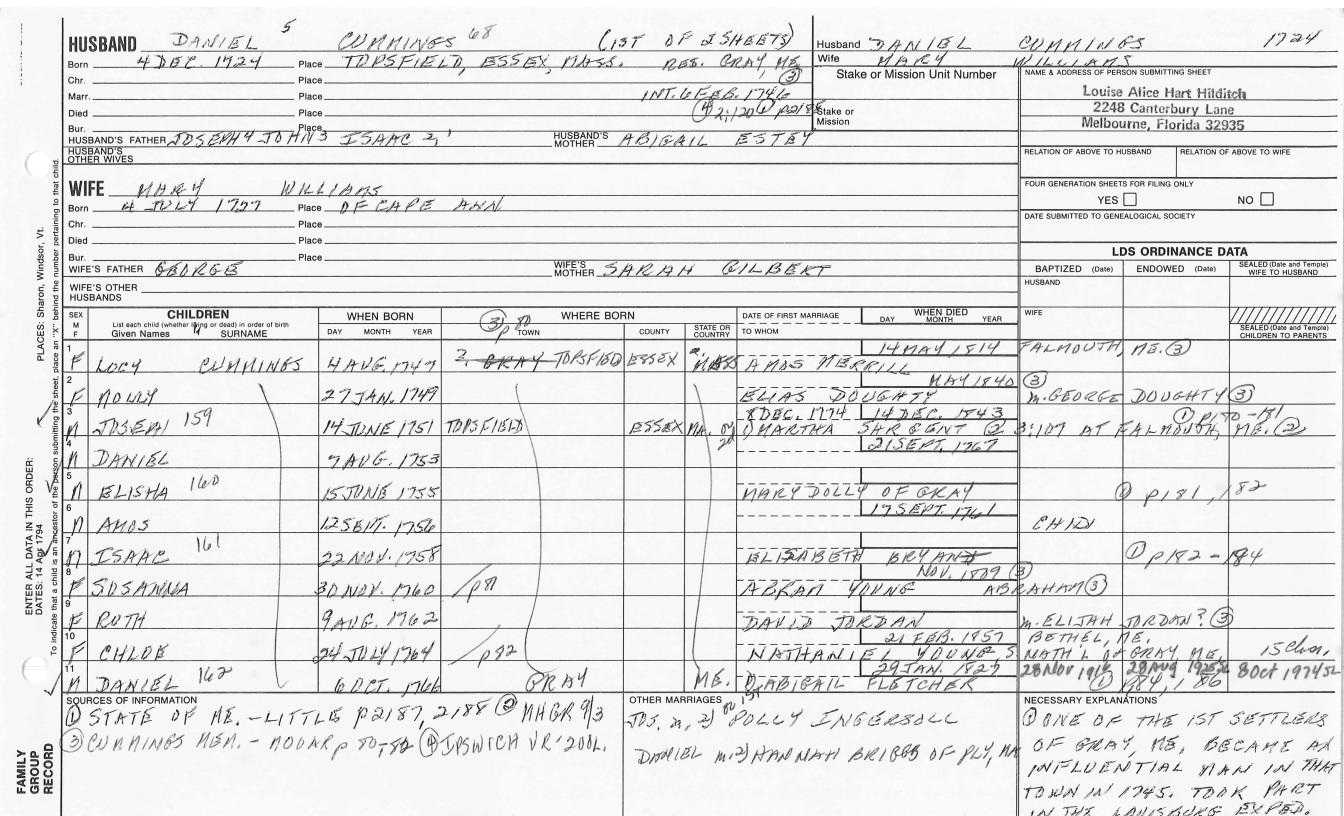 HUSBAND DANIEL 5 CUMMINGS 68 (1ST OF 2 SHEETS)
Born 4 DEC. 1724 Place TOPSFIELD, ESSEX, MASS. RES. GRAY, ME. ③
Chr. Place
Marr. Place INT. 6 FEB. 1746
Died Place ④ 2:120 ①
Bur. Place
HUSBAND'S FATHER JOSEPH 4 JOHN 3 ISAAC 2, 1 HUSBAND'S MOTHER ABIGAIL ESTEY
HUSBAND'S OTHER WIVES
Husband DANIEL CUMMINGS 1724
Wife MARY WILLIAMS
Stake or Mission Unit Number
Stake or Mission
NAME & ADDRESS OF PERSON SUBMITTING SHEET
Louise Alice Hart Hilditch
2248 Canterbury Lane
Melbourne, Florida 32935
RELATION OF ABOVE TO HUSBAND RELATION OF ABOVE TO WIFE
FOUR GENERATION SHEETS FOR FILING ONLY
YES NO
DATE SUBMITTED TO GENEALOGICAL SOCIETY
WIFE MARY WILLIAMS
Born 4 JULY 1727 Place OF CAPE ANN
Chr. Place
Died Place
Bur. Place
WIFE'S FATHER GEORGE WIFE'S MOTHER SARAH GILBERT
WIFE'S OTHER HUSBANDS
LDS ORDINANCE DATA
BAPTIZED (Date) ENDOWED (Date) SEALED (Date and Temple) WIFE TO HUSBAND
HUSBAND
WIFE
SEALED (Date and Temple) CHILDREN TO PARENTS
SEX M F CHILDREN WHEN BORN WHERE BORN DATE OF FIRST MARRIAGE WHEN DIED
List each child (whether living or dead) in order of birth
Given Names SURNAME DAY MONTH YEAR ③ p 80 TOWN COUNTY STATE OR COUNTRY TO WHOM DAY MONTH YEAR
1 14 MAY 1814 FALMOUTH, ME. ③
F LUCY CUMMINGS 4 AUG. 1747 2. GRAY TOPSFIELD ESSEX MASS AMOS MERRILL
2 MAY 1840 ③
F MOLLY 27 JAN. 1749 ELIAS DOUGHTY m. GEORGE DOUGHTY ③
3 8 DEC. 1774 14 DEC. 1843 ① p170-181
M JOSEPH 159 14 JUNE 1751 TOPSFIELD ESSEX MA. MARTHA SARGENT ② 3:107 AT FALMOUTH, ME. ②
4 21 SEPT. 1767
M DANIEL 7 AUG. 1753
5
M ELISHA 160 15 JUNE 1755 MARY DOLLY OF GRAY ① p181, 182
6 17 SEPT. 1761
M AMOS 12 SEPT. 1756 CHILD
7
M ISAAC 161 22 NOV. 1758 ELISABETH BRYANT ① p182-184
8 NOV. 1809 ③
F SUSANNA 30 NOV. 1760 /p81 ABRAM YOUNG ABRAHAM ③
9
F RUTH 9 AUG. 1762 DAVID JORDAN m. ELIJAH JORDAN? ③
10 21 FEB. 1857 BETHEL, ME.
F CHLOE 24 JULY 1764 /p82 NATHANIEL YOUNG S. NATH'L OF GRAY, ME.
11 29 JAN. 1827 28 Nov 28 Aug 8 Oct 1974 SL
M DANIEL 162 6 OCT. 1766 GRAY ME. ABIGAIL FLETCHER ① 184, 186
SOURCES OF INFORMATION
① STATE OF ME. - LITTLE p2187, 2188 ② MHGR 9/3
③ CUMMINGS MEM. - MOOAR p 80 ④ IPSWICH VR'S
OTHER MARRIAGES
JOS. m. 2) POLLY INGERSOLL
DANIEL m. 2) HANNAH BRIGGS OF PLY, MA
NECESSARY EXPLANATIONS
① ONE OF THE 1ST SETTLERS
OF GRAY, ME. BECAME AN
INFLUENTIAL MAN IN THAT
TOWN IN 1745. TOOK PART
IN THE LOUISBURG EXPED.
PLACES: Sharon, Windsor, Vt.
ENTER ALL DATA IN THIS ORDER:
DATES: 14 Apr 1794
To indicate that a child is an ancestor of the person submitting the sheet, place an "X" behind the number pertaining to that child.
FAMILY GROUP RECORD